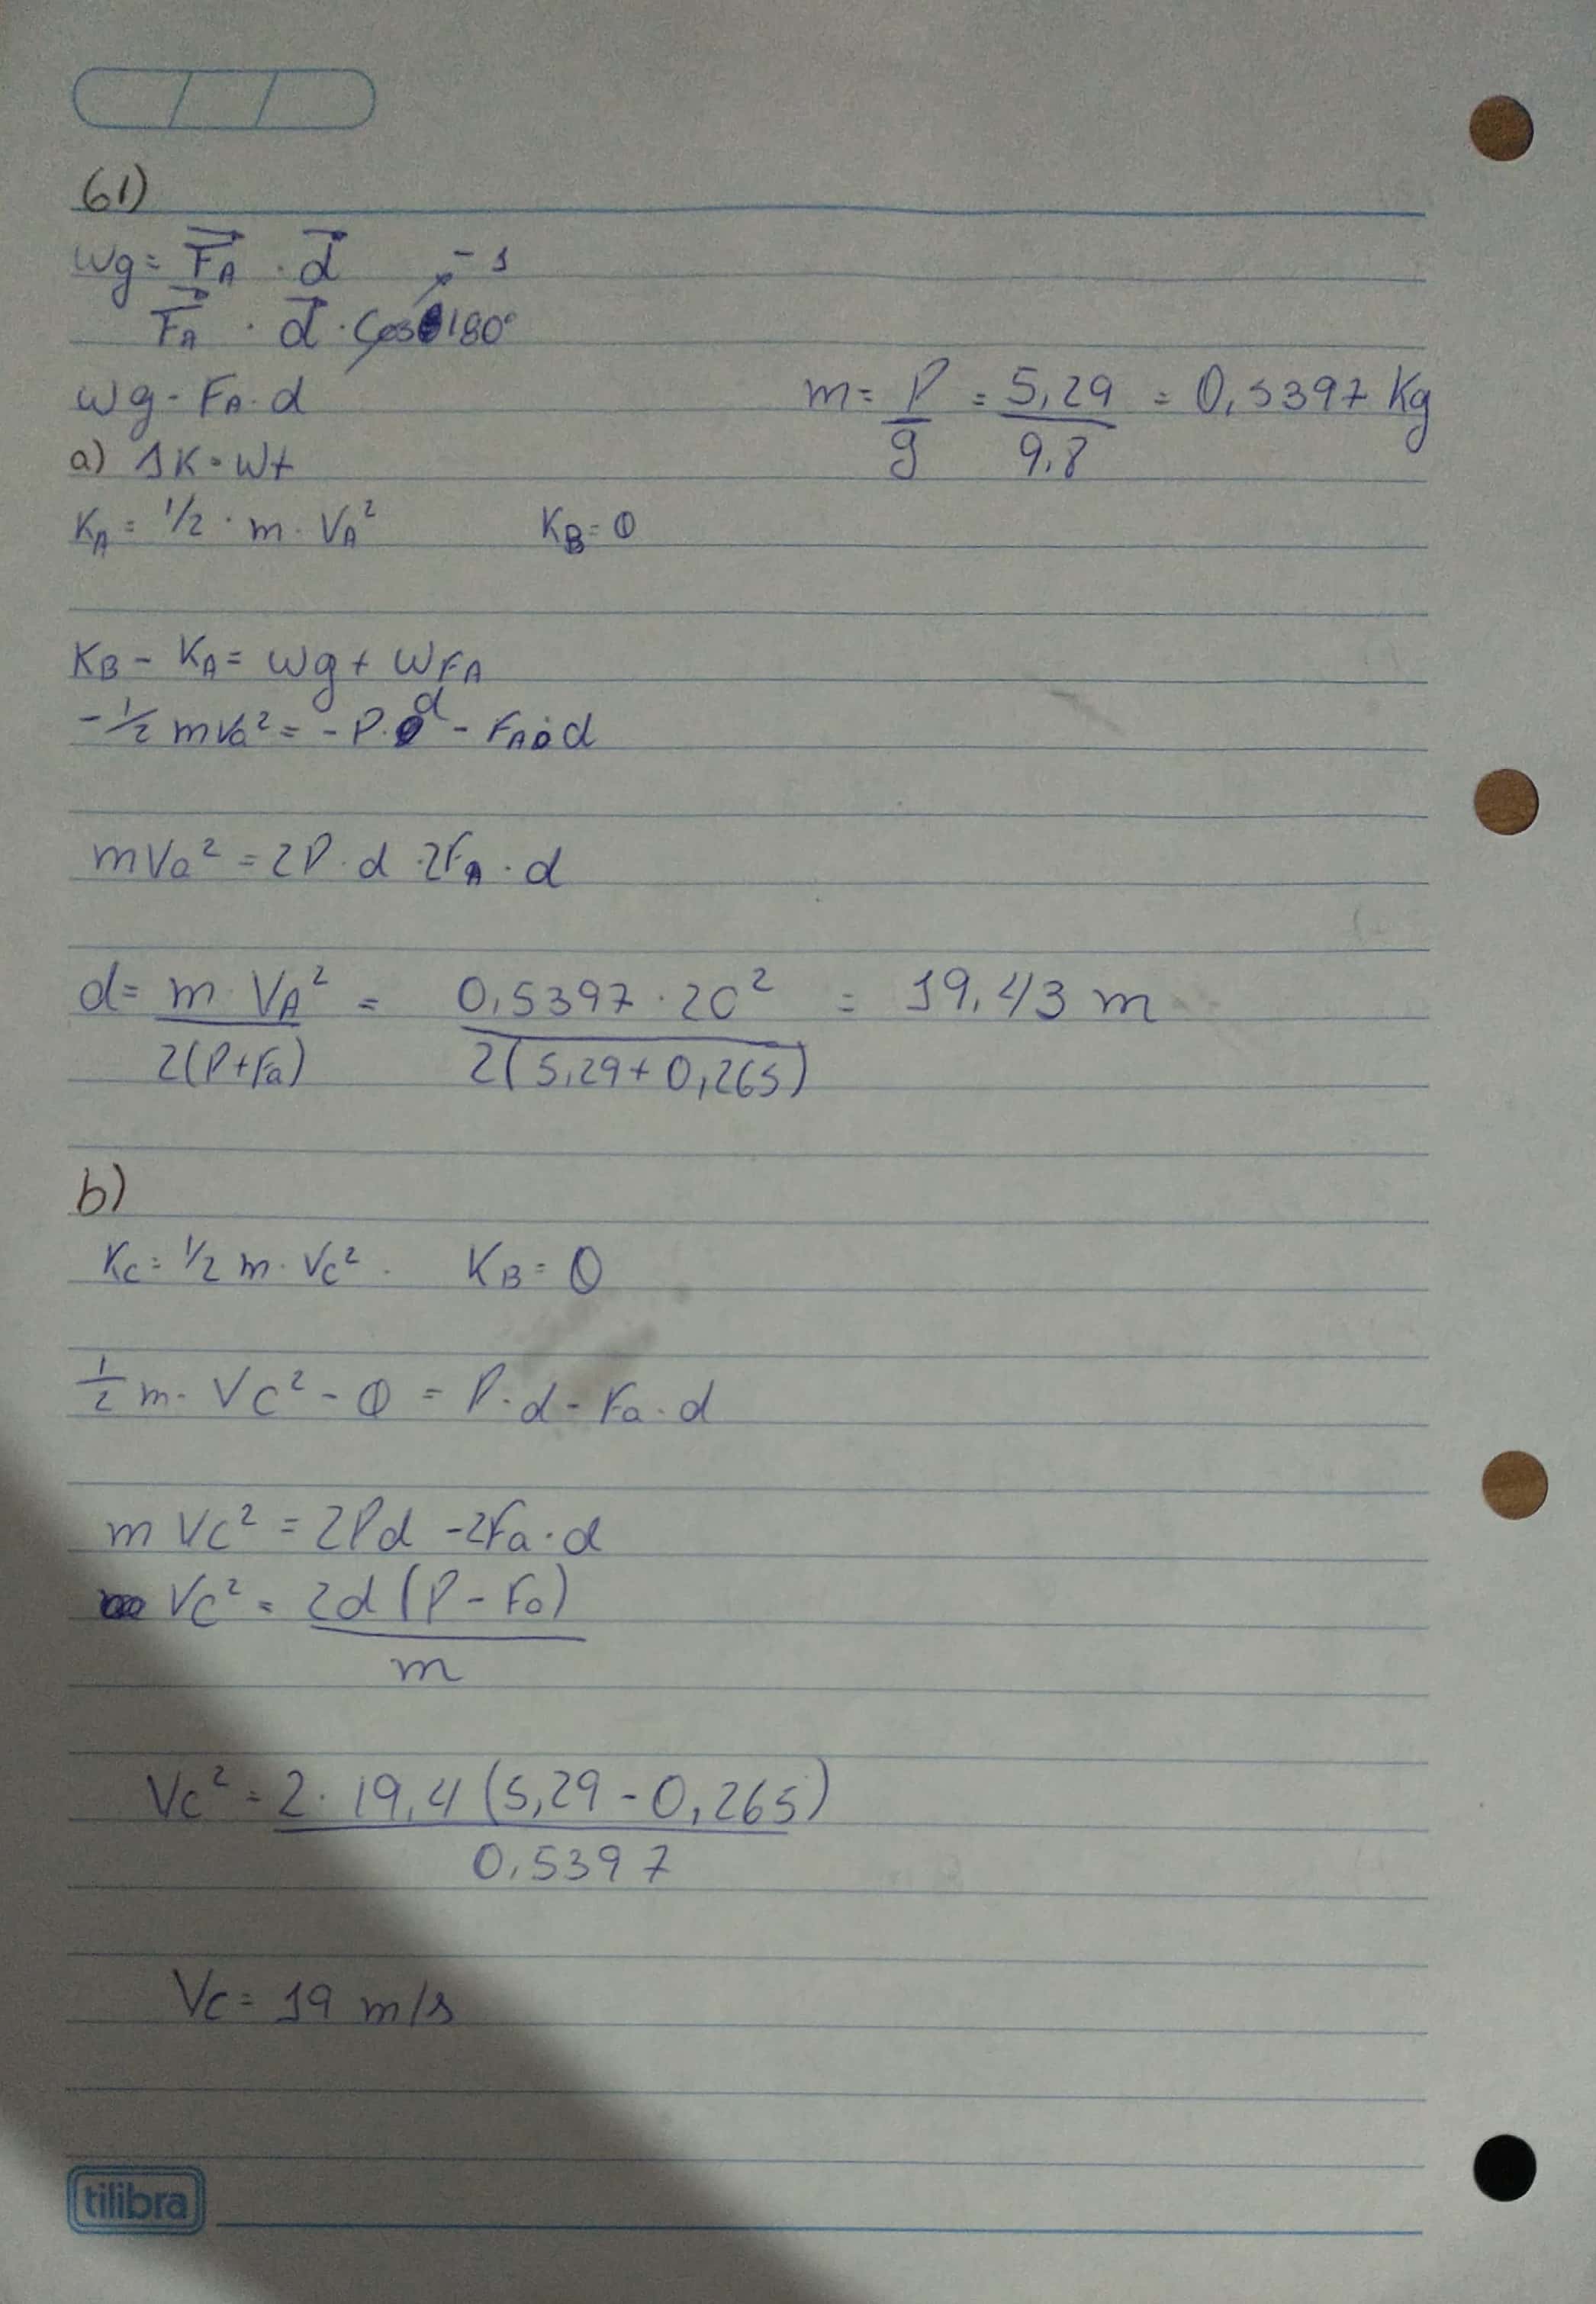 61)
Wg = F⃗A · d⃗ -1
F⃗A · d⃗ · Cos 180°
Wg - FA · d
m = P/g = 5,29/9,8 = 0,5397 Kg
a) ΔK = Wt
KA = 1/2 · m · VA² KB = 0
KB - KA = Wg + WFA
-1/2 mVa² = -P · d - FA · d
mVa² = 2P · d · 2FA · d
d = m · VA²/2(P+Fa) = 0,5397 · 20²/2(5,29 + 0,265) = 19,43 m
b)
KC = 1/2 m · VC² · KB = 0
1/2 m · VC² - 0 = P · d - Fa · d
m VC² = 2Pd - 2Fa · d
VC² = 2d (P - Fa)/m
VC² = 2 · 19,4 (5,29 - 0,265)/0,5397
VC = 19 m/s
tilibra